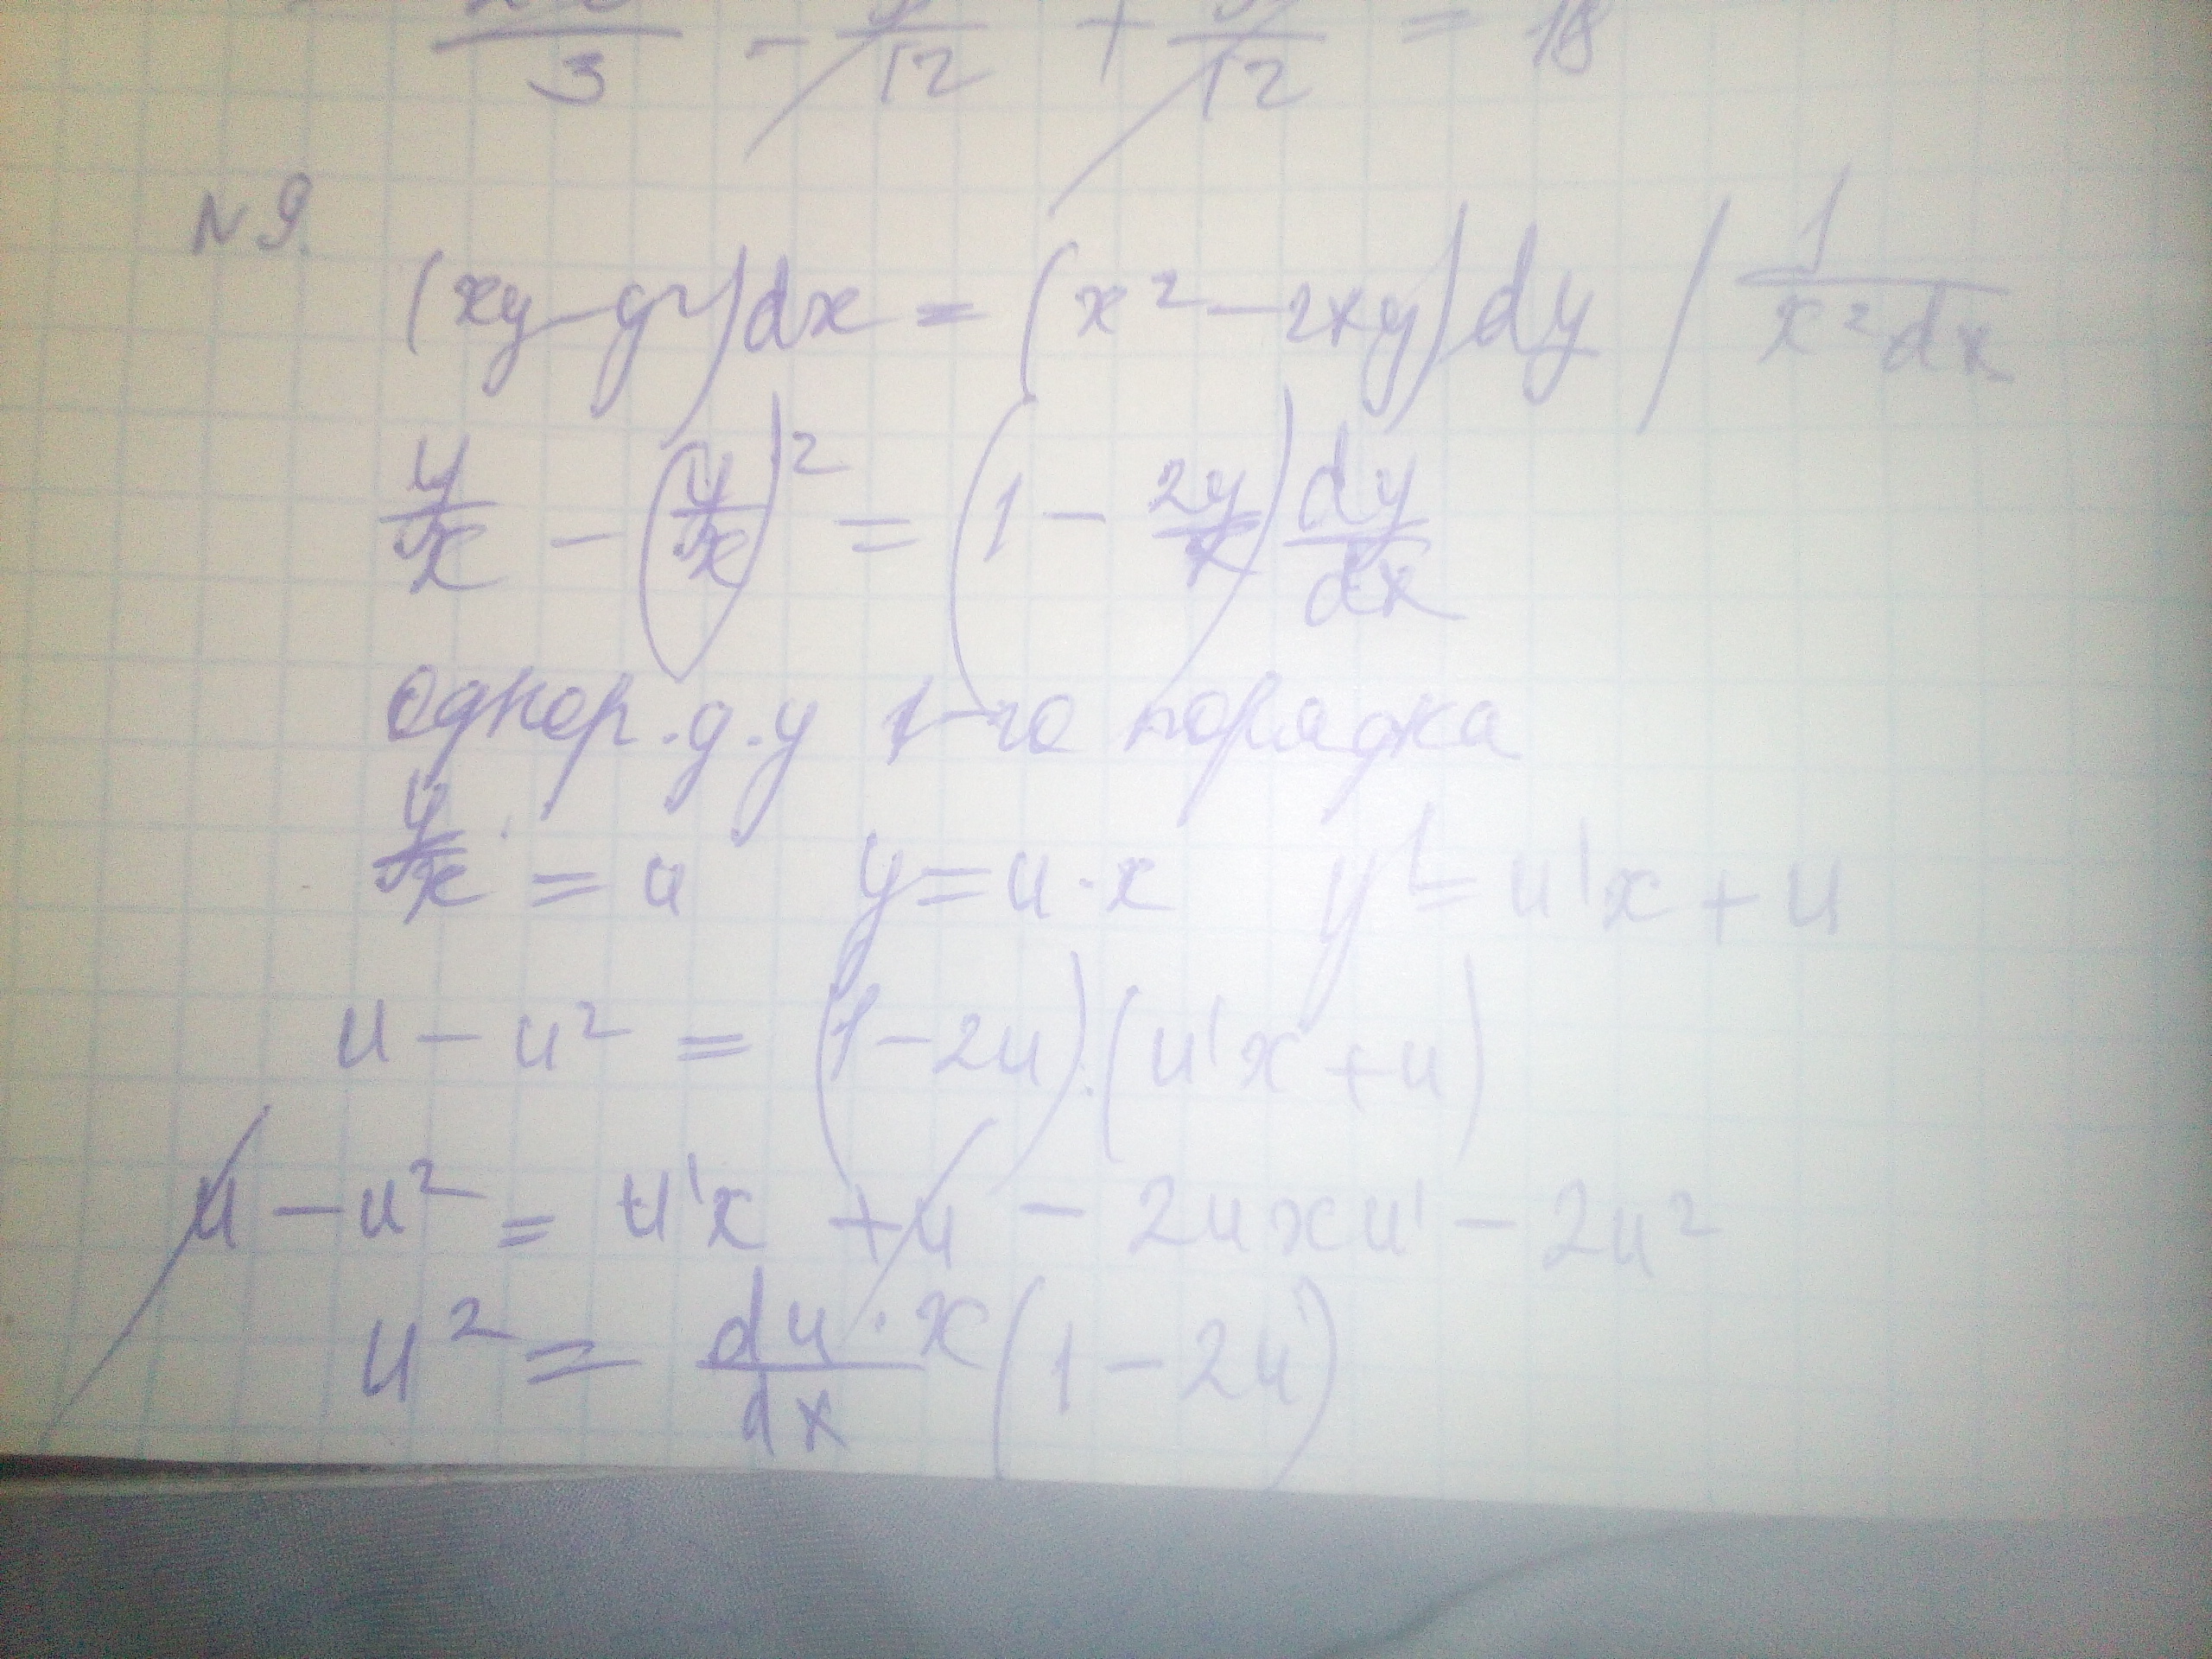 3 - 12 + 12 = 18
N 9.
(xy - y²)dx = (x² - 2xy)dy / 1/(x²dx)
y/x - (y/x)² = (1 - 2y/x) dy/dx
однор. д. у 1-го порядка
y/x = u y = u · x y' = u'x + u
u - u² = (1 - 2u) · (u'x + u)
u - u² = u'x + u - 2uxu' - 2u²
u² = du/dx · x (1 - 2u)